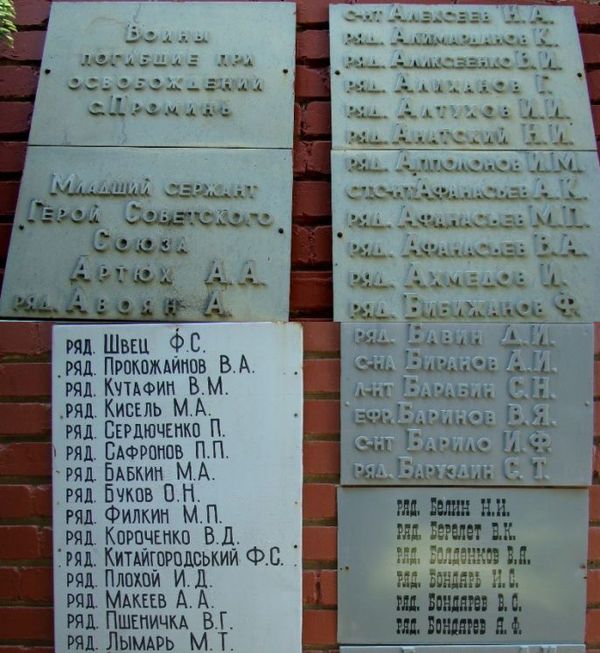 Воины
погибшие при
освобождений
с.Проминь
Младший сержант
Герой Советского
Союза
Артюх А.А.
ряд. Авоян А.
с-нт Алексеев Н.А.
ряд. Алимарданов К.
ряд. Аликсеенко В.И.
ряд. Алиханов Г.
ряд. Алтухов И.И.
ряд. Анатский Н.И.
ряд. Апполонов И.М.
ст.с-нт Афанасьев А.К.
ряд. Афанасьев М.П.
ряд. Афанасьев В.А.
ряд. Ахмедов И.
ряд. Бибижанов Ф.
ряд. Бавин Д.И.
с-на Биранов А.И.
л-нт Барабин С.Н.
ефр. Баринов В.Я.
с-нт Барило И.Ф.
ряд. Баруздин С.Т.
ряд. Швец Ф.С.
ряд. Прокожайнов В.А.
ряд. Кутафин В.М.
ряд. Кисель М.А.
ряд. Сердюченко П.
ряд. Сафронов П.П.
ряд. Бабкин М.А.
ряд. Буков О.Н.
ряд. Филкин М.П.
ряд. Короченко В.Д.
ряд. Китайгородський Ф.С.
ряд. Плохой И.Д.
ряд. Макеев А.А.
ряд. Пшеничка В.Г.
ряд. Лымарь М.Т.
ряд. Белин Н.И.
ряд. Берелет В.К.
ряд. Болденков В.Я.
ряд. Бондарь И.С.
ряд. Бондарев В.С.
ряд. Бондарев Я.Ф.